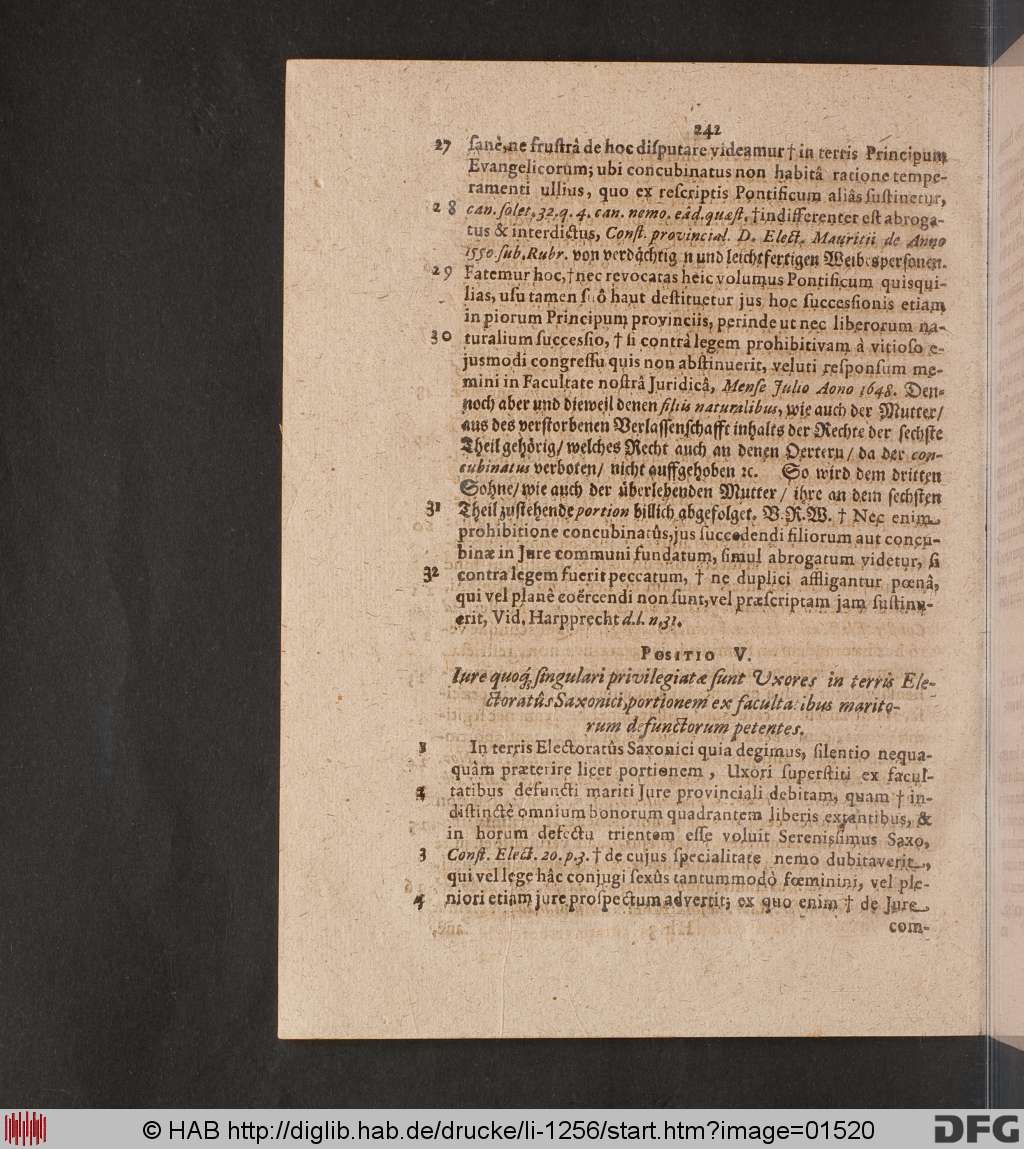 242
27 ſanè, ne fruſtrà de hoc diſputare videamur † in terris Principum
Evangelicorum; ubi concubinatus non habitâ ratione tempe-
ramenti ullius, quo ex reſcriptis Pontificum aliâs ſuſtinetur,
28 can. ſolet. 32. q. 4. can. nemo. eâd. quæſt. † indifferenter eſt abroga-
tus & interdictus, Conſt. provincial. D. Elect. Mauritii de Anno
1550. ſub. Rubr. von verdächtig n und leichtfertigen Weibsperſonen.
29 Fatemur hoc, † nec revocatas heic volumus Pontificum quisqui-
lias, uſu tamen ſuô haut deſtituetur jus hoc ſucceſſionis etiam
in piorum Principum provinciis, perinde ut nec liberorum na-
30 turalium ſucceſſio, † ſi contrà legem prohibitivam à vitioſo e-
jusmodi congreſſu quis non abſtinuerit, veluti reſponſum me-
mini in Facultate noſtrâ Juridicâ, Menſe Julio Aono 1648. Den-
noch aber und dieweil denen filiis naturalibus, wie auch der Mutter/
aus des verſtorbenen Verlaſſenſchafft inhalts der Rechte der ſechſte
Theil gehörig/ welches Recht auch an denen Oertern/ da der con-
cubinatus verboten/ nicht auffgehoben ꝛc. So wird dem dritten
Sohne/ wie auch der überlebenden Mutter/ ihre an dem ſechſten
31 Theil zuſtehende portion billich abgefolget. V.R.W. † Nec enim
prohibitione concubinatûs, jus ſuccedendi filiorum aut concu-
binæ in Jure communi fundatum, ſimul abrogatum videtur, ſi
32 contra legem fuerit peccatum, † ne duplici affligantur pœnâ,
qui vel planè coërcendi non ſunt, vel præſcriptam jam ſuſtinu-
erit, Vid. Harpprecht d. l. n. 31.
POSITIO V.
Iure quoq; ſingulari privilegiatæ ſunt Uxores in terris Ele-
ctoratûs Saxonici, portionem ex facultatibus marito-
rum defunctorum petentes.
1 In terris Electoratûs Saxonici quia degimus, ſilentio nequa-
quàm præterire licet portionem, Uxori ſuperſtiti ex facul-
2 tatibus defuncti mariti Jure provinciali debitam, quam † in-
diſtinctè omnium bonorum quadrantem liberis extantibus, &
in horum defectu trientem eſſe voluit Sereniſſimus Saxo,
3 Conſt. Elect. 20. p. 3. † de cujus ſpecialitate nemo dubitaverit,
qui vel lege hâc conjugi ſexûs tantummodò fœminini, vel ple-
4 niori etiam jure proſpectum advertit; ex quo enim † de Jure
com-
© HAB http://diglib.hab.de/drucke/li-1256/start.htm?image=01520
DFG